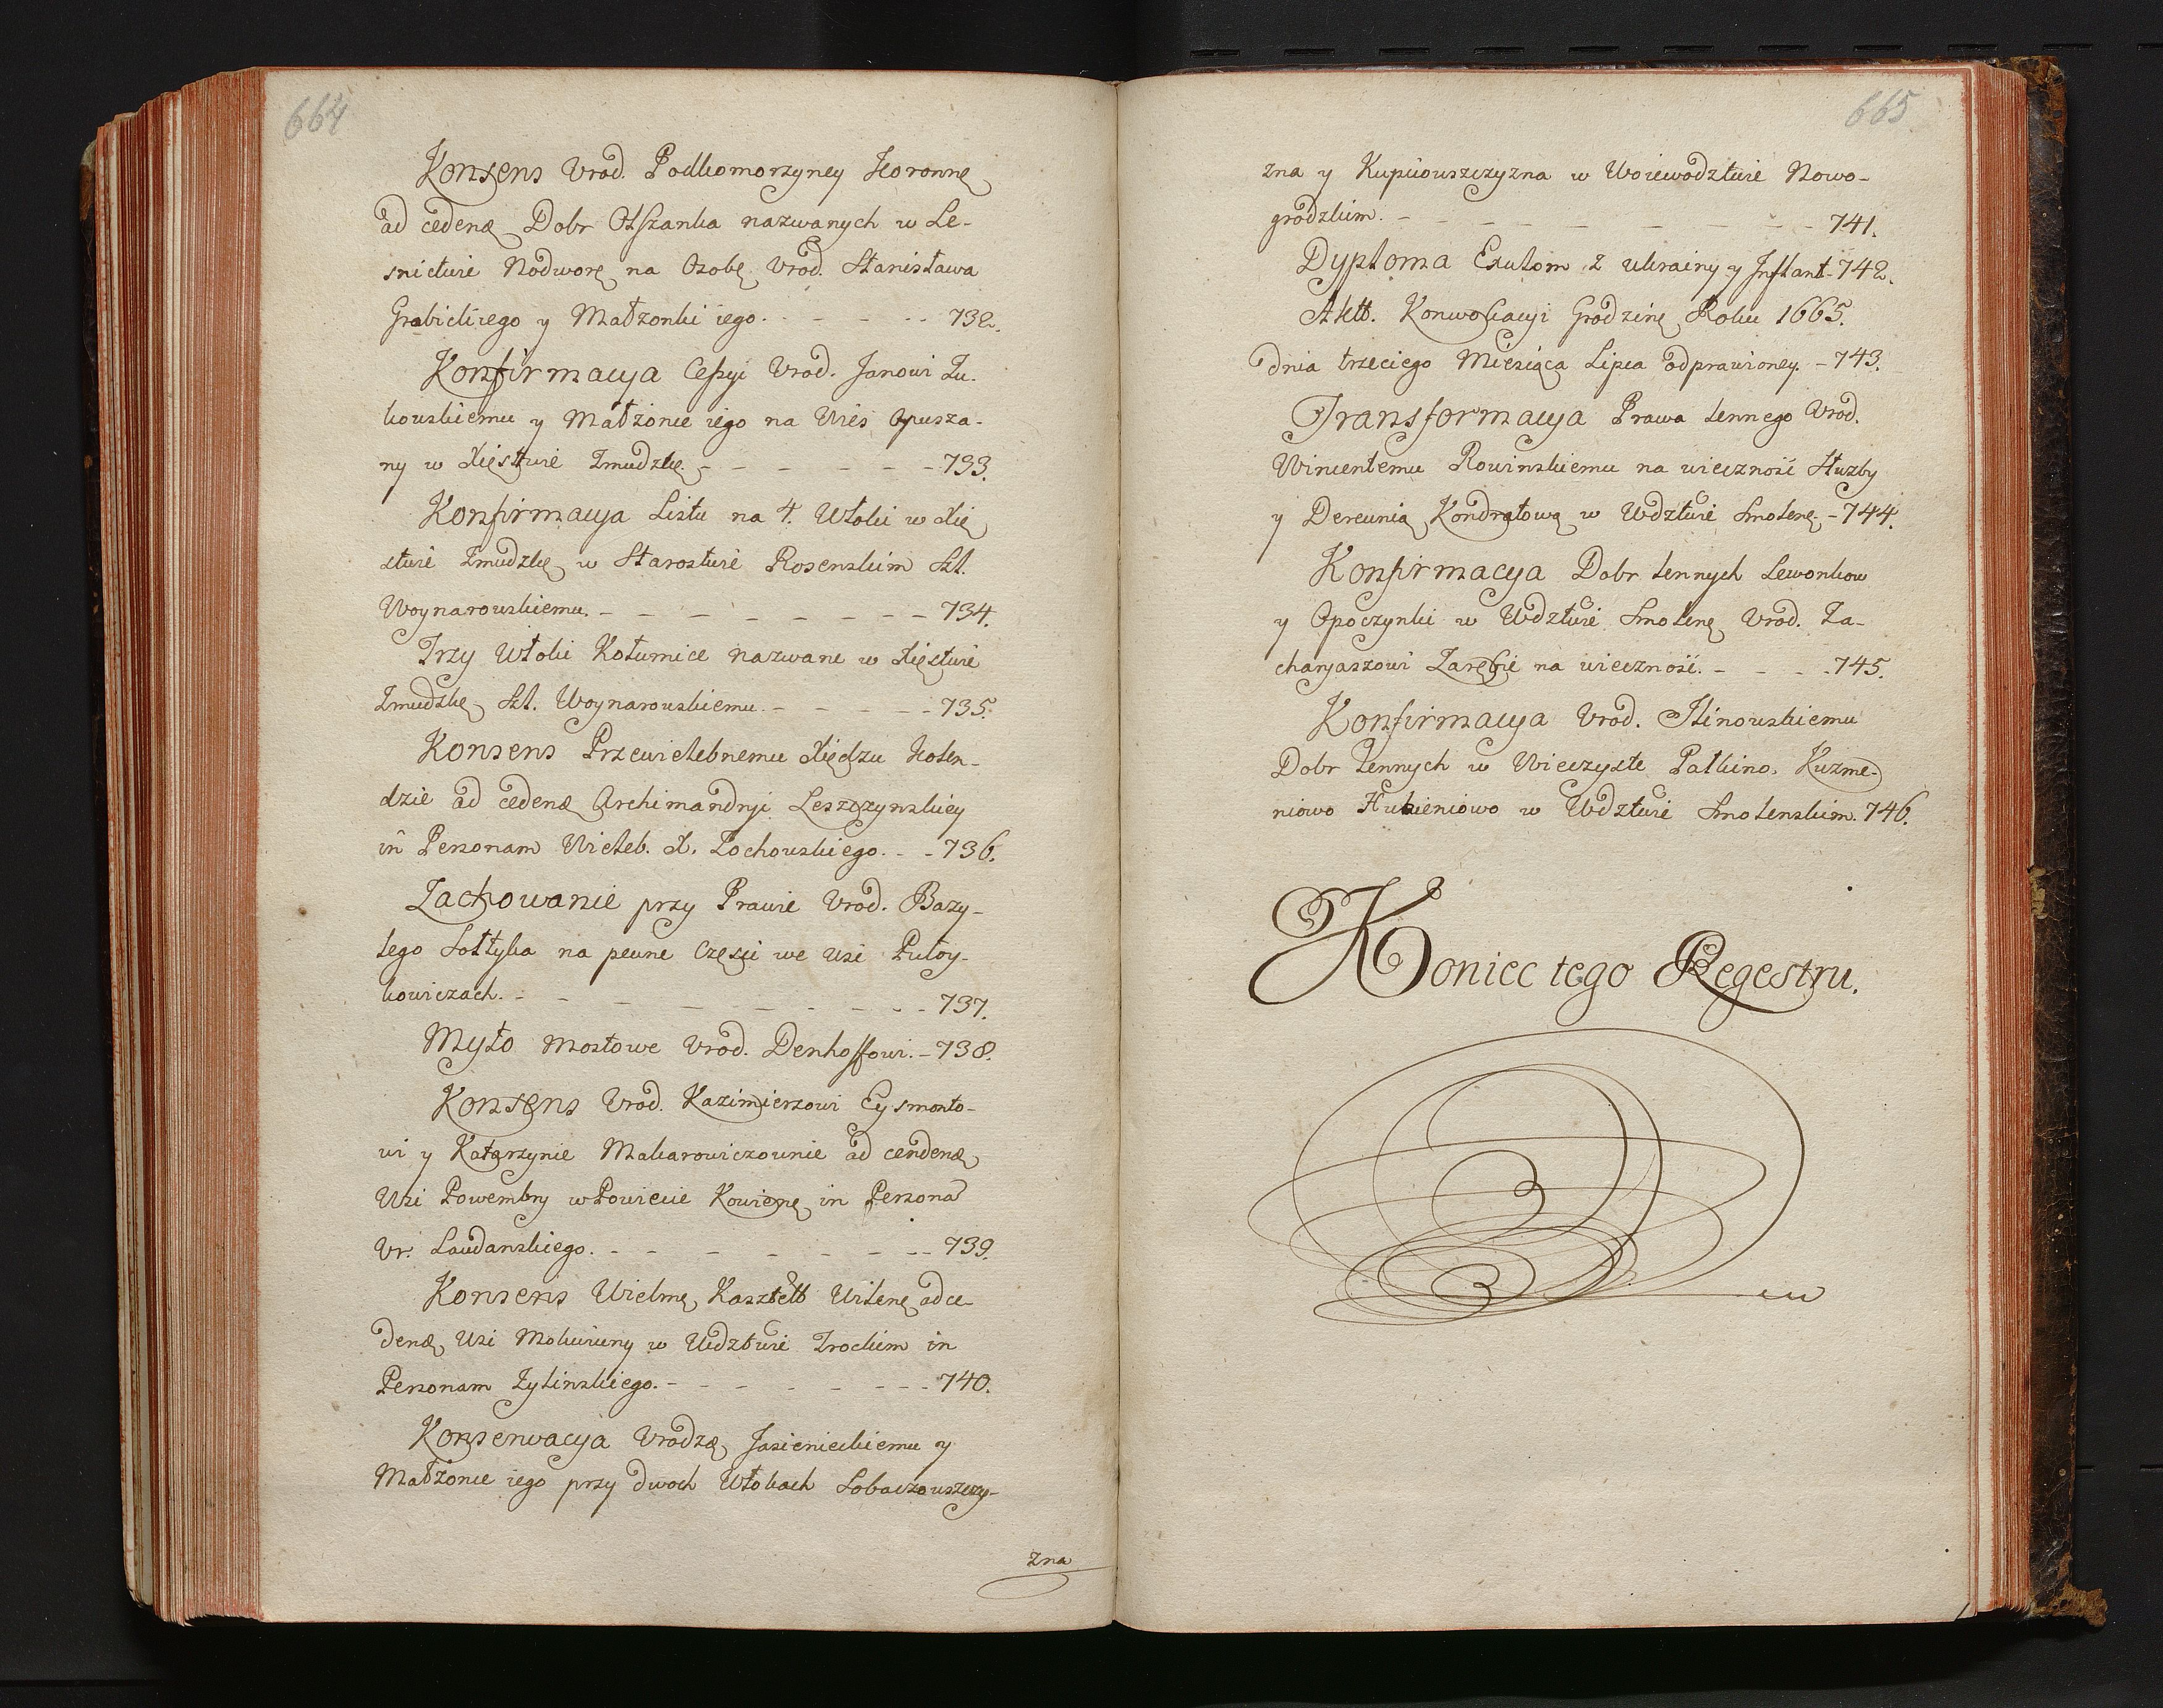 664
Konsens Urod. Podkomorzyney Koronnę
ad cedendę Dobr Olszanka nazwanych w Le-
snictwie Nodworę na Osobę Urod. Stanisława
Grabickiego y Małzonki iego. - - - - - 732.
Konfirmacya Cessyi Urod. Janowi Zu-
kowskiemu y Małżonce iego na Wieś Opusza-
ny w Xięstwie Zmudzkę - - - - - - 733.
Konfirmacya Listu na 4. Włoki w Xię
stwie Zmudzkę w Starostwie Rosenskim Szl.
Woynarowskiemu. - - - - - - - 734.
Trzy Włoki Kołumice nazwane w Xięstwie
Zmudzkę Szl. Woynarowskiemu. - - - - - 735.
Konsens Przewielebnemu Xiędzu Kolen-
dzie ad cedendę Archimandryi Leszczynskiey
in Personam Wieleb. X. Zochowskiego. - - 736.
Zachowanie przy Prawie Urod. Bazy-
lego Sołtyka na pewne Części we wsi Puloy-
kowiczach. - - - - - - - - - 737.
Myto mostowe Urod. Denhoffowi. - 738.
Konsens Urod. Kazimierzowi Eysmonto-
wi y Katarzynie Makarowiczownie ad cendenę
Wsi Powembry w Powiecie Kowienę in Persona
Ur. Laudanskiego. - - - - - - - - 739.
Konsens Wielmę Kasztell Wilenę ad ce-
denę Wsi Mokuiuny w Wdztwie Trockim in
Personam Zylinskiego. - - - - - - - - 740.
Konserwacya Urodzę Jasienieckiemu y
Małżonce iego przy dwoch Włokach Sobaczowszczy-
zna
665
zna y Kupciowszczyzna w Woiewodztwie Nowo-
grodzkim. - - - - - - - - - 741.
Dyploma Exulom z Ukrainy y Inflant - 742.
Aktt. Konwokacyi Grodzinę Roku 1665.
dnia trzeciego Miesiąca Lipca odprawioney. - 743.
Transformacya Prawa lennego Urod.
Wincentemu Rowinskiemu na wieczność Służby
y Derewnią Kondratową w Wdztwie Smolenę - 744.
Konfirmacya Dobr lennych Lewonkow
y Opoczynki w Wdztwie Smolenę Urod. Za-
charyaszowi Zarębie na wieczność. - - - - 745.
Konfirmacya Urod. Ilinowskiemu
Dobr lennych w Wieczyste Patkino, Kuzme-
niowo Hubieniowo w Wdztwie Smolenskim. 746.
Koniec tego Regestru.